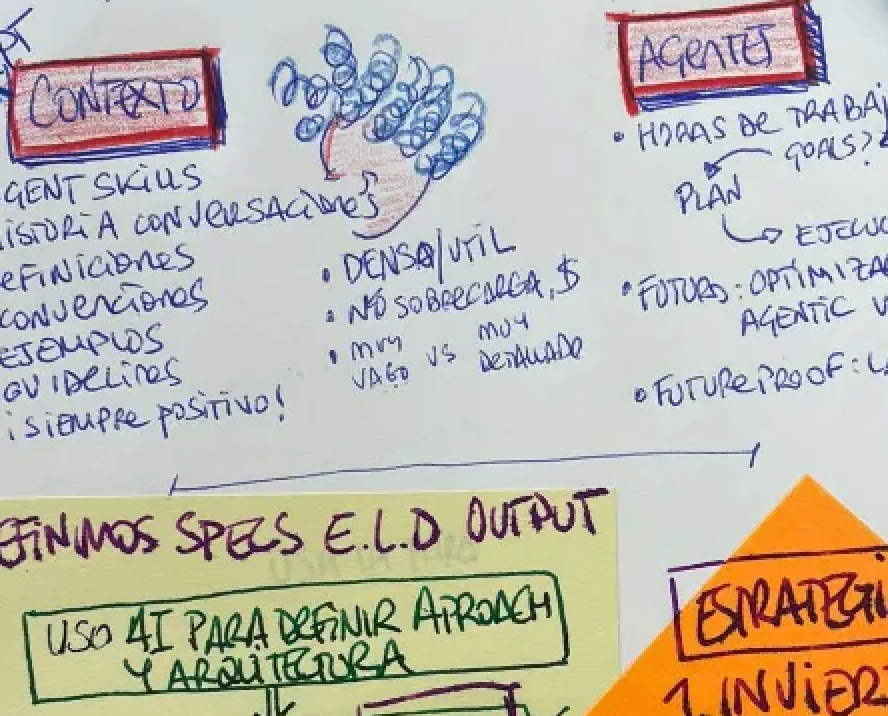 PT
CONTEXTO
GENT SKILLS
ISTORIA CONVERSACIONES
EFINICIONES
CONVENCIONES
EJEMPLOS
GUIDELINES
¡SIEMPRE POSITIVO!
• DENSO/UTIL
• NO SOBRECARGA, $
• MUY VAGO VS MUY DETALLADO
AGENTES
• HORAS DE TRABAJ
GOALS?
PLAN
EJECUC
• FUTURO: OPTIMIZA
AGENTIC W
• FUTURE PROOF: L
EFINIMOS SPECS E.L.D OUTPUT
USO AI PARA DEFINIR APROACH
Y ARQUITECTURA
ESTRATEGI
1. INVIER